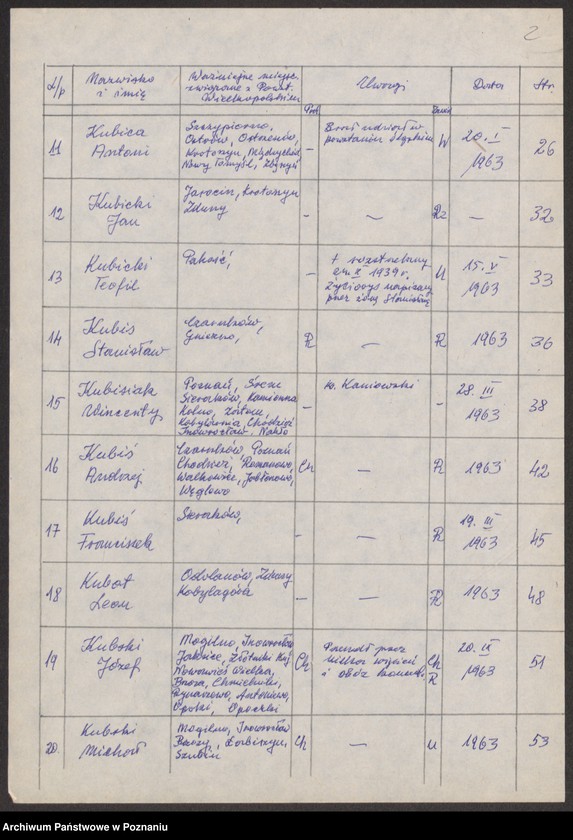 2
L/p Nazwisko i imię Ważniejsze miejsc. związane z Powst. Wielkopolskim Uwagi Data Str.
11 Kubica Antoni Szczypiorno, Ostrów, Ostrzeszów, Krotoszyn, Międzychód Nowy Tomyśl, Zbąszyń – Brał udział w powstaniu Śląskim W 20. I 1963 26
12 Kubicki Jan Jarocin, Krotoszyn Zduny – – Rz – 32
13 Kubicki Teofil Pakość, – + rozstrzelany X 1939 r. Życiorys napisany przez żonę Stanisławę U 15. V 1963 33
14 Kubis Stanisław Czarnków, Gniezno, R – R 1963 36
15 Kubisiak Wincenty Poznań, Sieraków, Kamionna Kolno, Kobylarnia Chodzież Inowrocław. Nakło – ps. Kaniowski – 28. III 1963 38
16 Kubiś Andrzej Czarnków, Poznań Chodzież, Romanowo, Walkowice, Jabłonowo, Węglewo Ch – R 1963 42
17 Kubiś Franciszek Sieraków, – – R 19. III 1963 45
18 Kubot Leon Odolanów, Zduny Kobylagóra – – R 1963 48
19 Kubski Józef Mogilno, Inowrocław Jaksice, Złotniki Kuj. Nowawieś Wielka, Brzoza, Chmielniki, Rynarzewo, Antoniewo, Ch Przeszedł przez więzień i obóz koncentr. Ch R 20. IX 1963 51
20. Kubski Michał Mogilno, Inowrocław Szubin Ch – U 1963 53
Archiwum Państwowe w Poznaniu